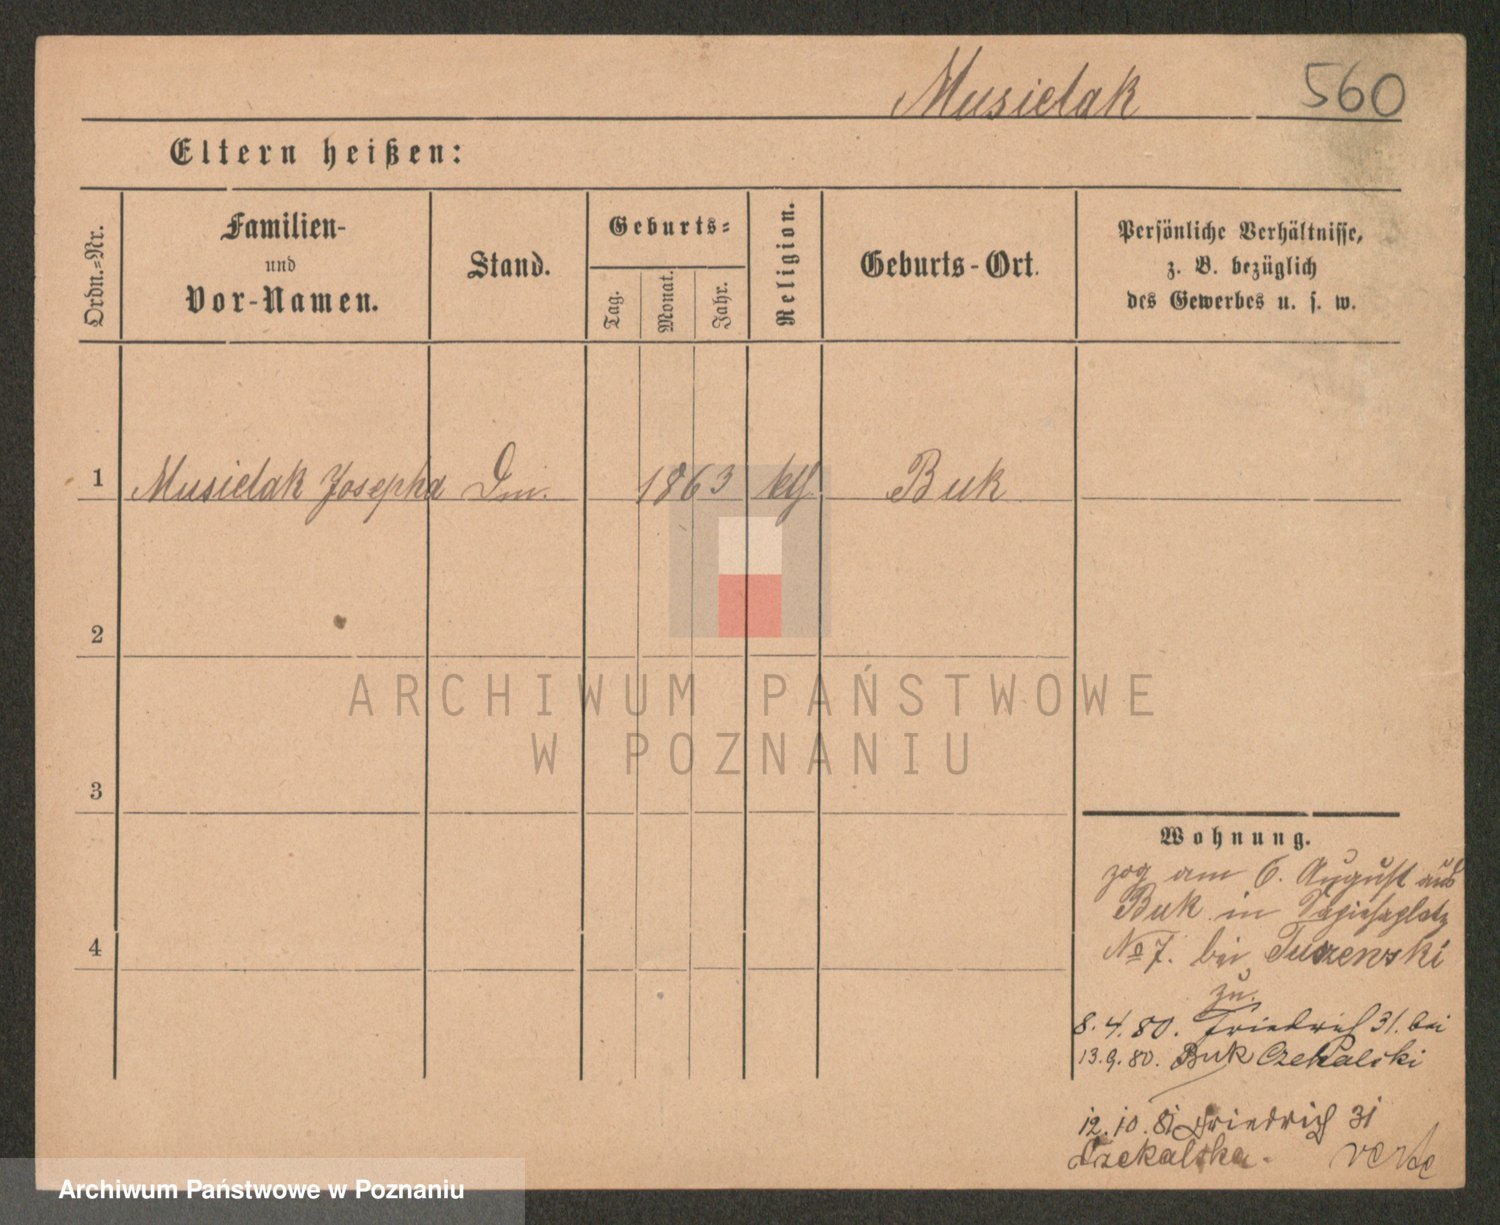 Musielak 560
Eltern heißen:
Ordn.=Nr.
Familien-
und
Vor-Namen.
Stand.
Geburts=
Tag.
Monat.
Jahr.
Religion.
Geburts-Ort.
Persönliche Verhältnisse,
z. B. bezüglich
des Gewerbes u. s. w.
1 Musielak Josepha 1863 kth. Buk
2
3
4
ARCHIWUM PAŃSTWOWE
W POZNANIU
Wohnung.
zog am 6. August aus
Buk in Sapiehaplatz
No 7. bei Tuszewski
zu.
8. 4. 80. Friedrich 31. bei
13. 9. 80. Buk Czekalski
12. 10. 81 Friedrich 31
Czekalska. verte
Archiwum Państwowe w Poznaniu